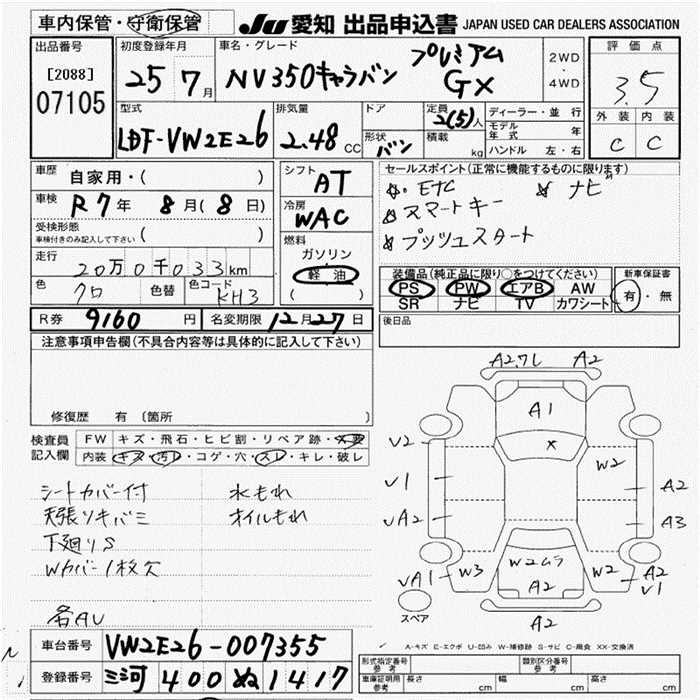 車内保管・守衛保管
JU 愛知 出品申込書 JAPAN USED CAR DEALERS ASSOCIATION
出品番号
[2088]
07105
初度登録年月
25 7月
車名・グレード
プレミアム
NV350キャラバン GX
2WD
・
4WD
評価点
3.5
外装 内装
C C
型式
LDF-VW2E26
排気量
2.48 CC
ドア
形状
バン
定員
2(5)人
積載
kg
ディーラー・並行
モデル年式 年
ハンドル 左・右
車歴
自家用・( )
車検
R7年 8月(8日)
受検形態
車検付きのみ記入して下さい ( )
走行
20万0千033km
色 クロ 色替 色コード KH3
シフト
AT
冷房
WAC
燃料
ガソリン
軽油
( )
セールスポイント(正常に機能するものに限ります)
ETC ナビ
スマートキー
プッシュスタート
装備品(純正品に限り○をつけてください)
PS PW エアB AW
SR ナビ TV カワシート
新車保証書
有・無
R券 9160円 名変期限 12月27日
後日品
注意事項申告欄(不具合内容等は具体的に記入して下さい)
修復歴 有 〔箇所 〕
検査員
記入欄
FW キズ・飛石・ヒビ割・リペア跡・
内装 キズ・汚レ・コゲ・穴・スレ・キレ・破レ
シートカバー付 水もれ
天張ツキバミ オイルもれ
下廻りS
Wカバー1枚欠
各AU
A2.7L A2
A1
V2 X
W2
V1 A2
VA2 A3
W3 W2ムラ W2
VA1 A2 A2
V1
スペア A2
A-キズ E-エクボ U-凹み W-補修跡 S-サビ C-腐食 XX-交換済
車台番号 VW2E26-007355
登録番号 三河 400 ぬ 1417
形式指定番号
参考
類別区分番号
参考
車庫証明用
参考
長さ cm 幅 cm 高さ cm